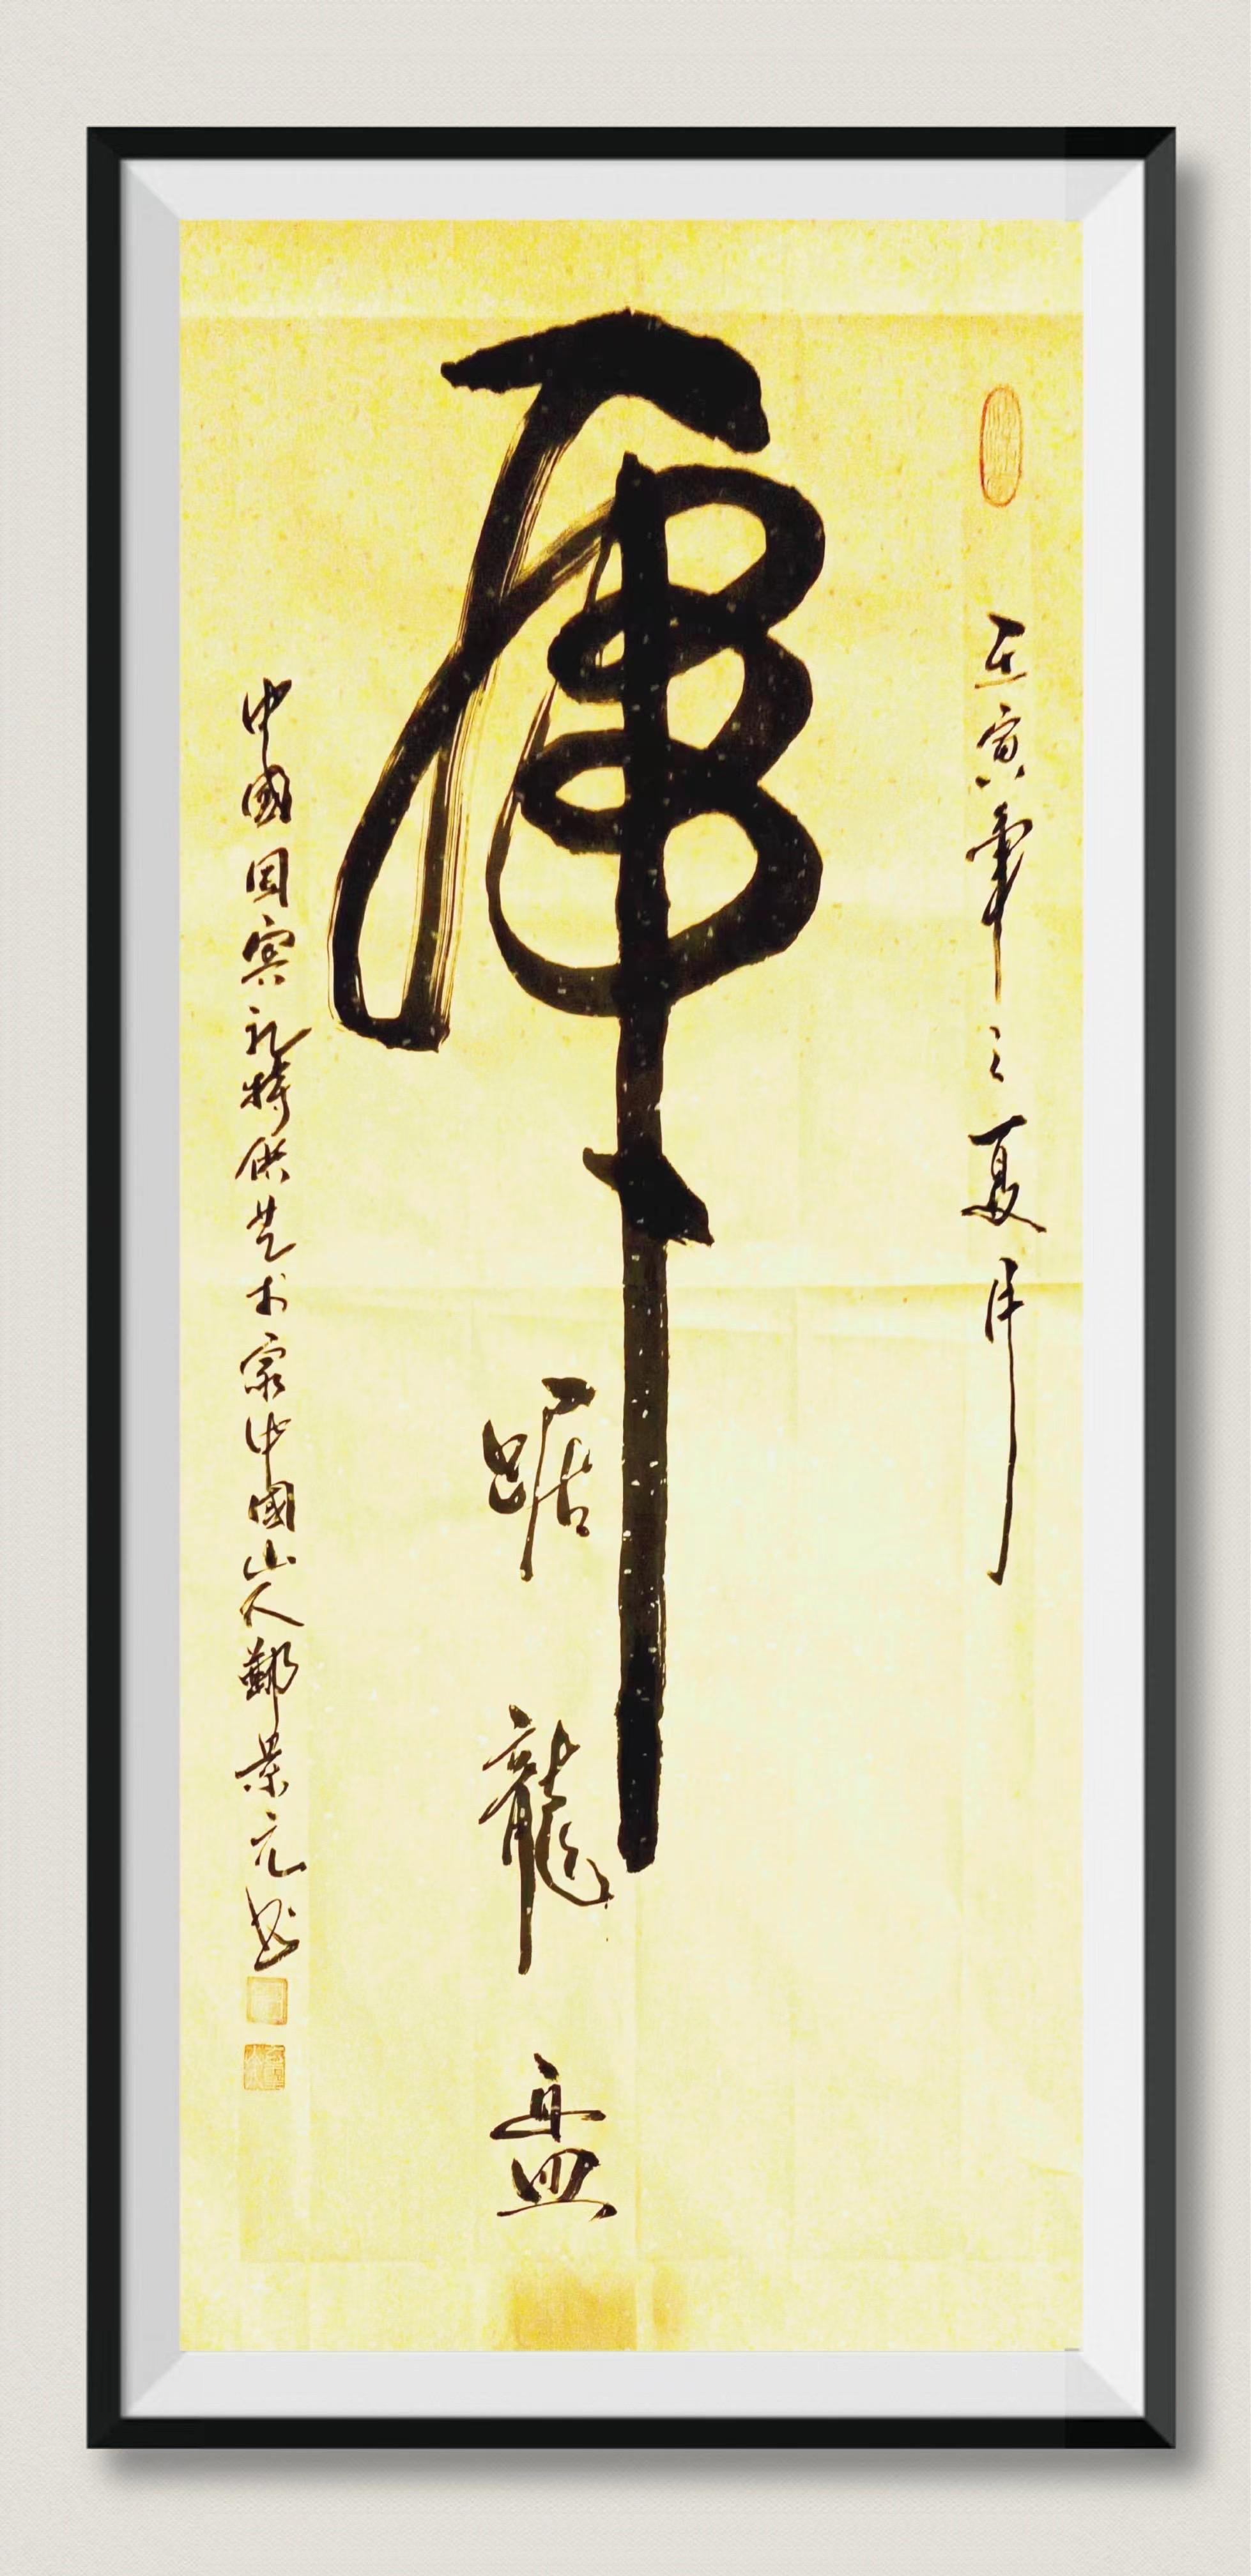 壬寅年之夏
虎
踞龍盘
中國国宾礼特供艺术家中國山人鄭景元书